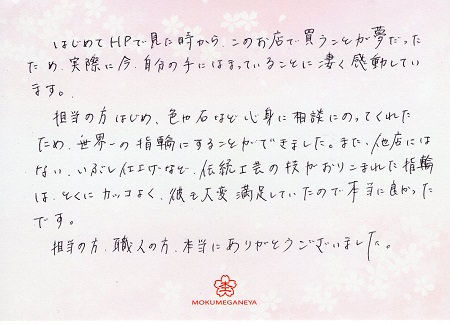 はじめてHPで見た時から、このお店で買うことが夢だった
ため、実際に今、自分の手にはまっていることに凄く感動してい
ます。
担当の方はじめ、色や石など心身に相談にのってくれた
ため、世界一の指輪にすることができました。また、他店には
ない、いぶし仕上げなど、伝統工芸の技がおりこまれた指輪
は、とくにカッコよく、彼も大変満足していたので本当に良かった
です。
担当の方、職人の方、本当にありがとうございました。
MOKUMEGANEYA